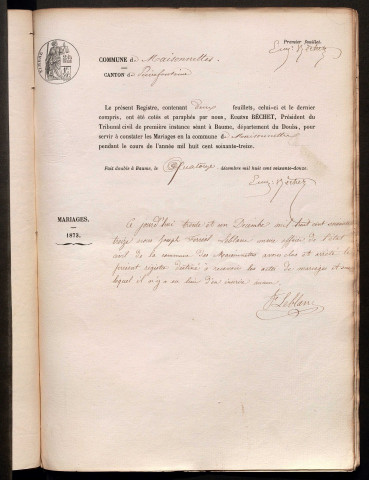 Premier feuillet.
Eug. Béchet
COMMUNE de Maisonnettes
CANTON de Pierrefontaine
Le présent Registre, contenant deux feuillets, celui-ci et le dernier
compris, ont été cotés et paraphés par nous, EUGÈNE BÉCHET, Président du
Tribunal civil de première instance séant à Baume, département du Doubs, pour
servir à constater les Mariages en la commune de Maisonnettes
pendant le cours de l'année mil huit cent soixante-treize.
Fait double à Baume, le Quatorze décembre mil huit cent soixante-douze.
Eug. Béchet
MARIAGES.
1873.
Ce jourd'hui trente et un Décembre mil huit cent soixante
treize nous Joseph Leblanc maire officier de l'état
civil de la commune des Maisonnettes avons clos et arrêté le
présent registre destiné à recevoir les actes de mariages et sur
lequel il n'y a eu lieu d'en inscrire aucun.
Leblanc